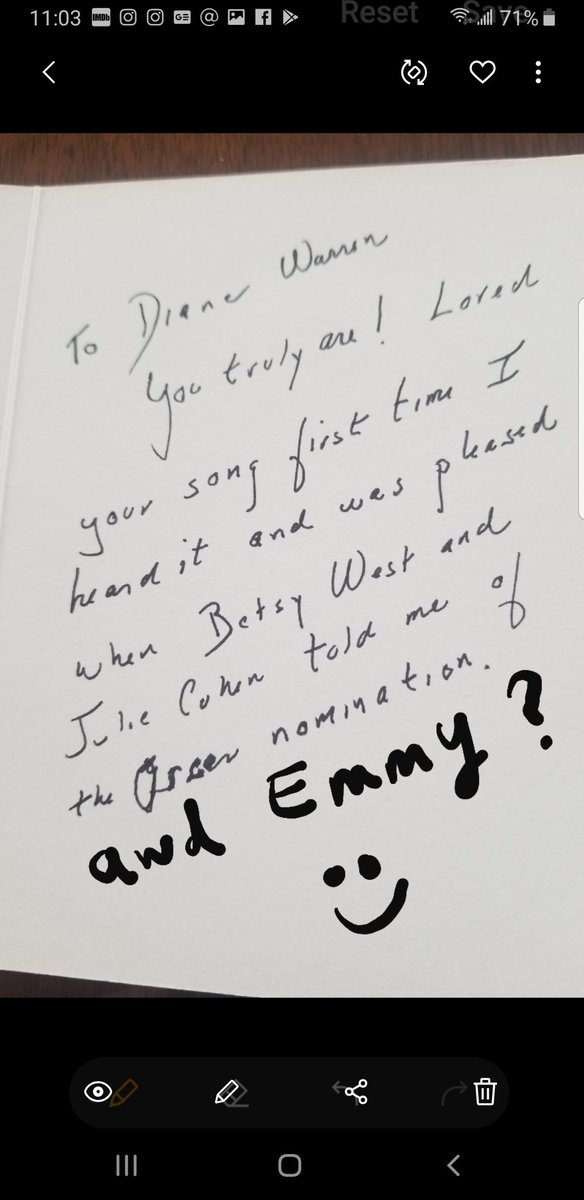 11:03 IMDb GE @ 71%
Reset Save
To Diane Warren
You truly are! Loved
your song first time I
heard it and was pleased
when Betsy West and
Julie Cohen told me of
the Oscar nomination.
and Emmy?